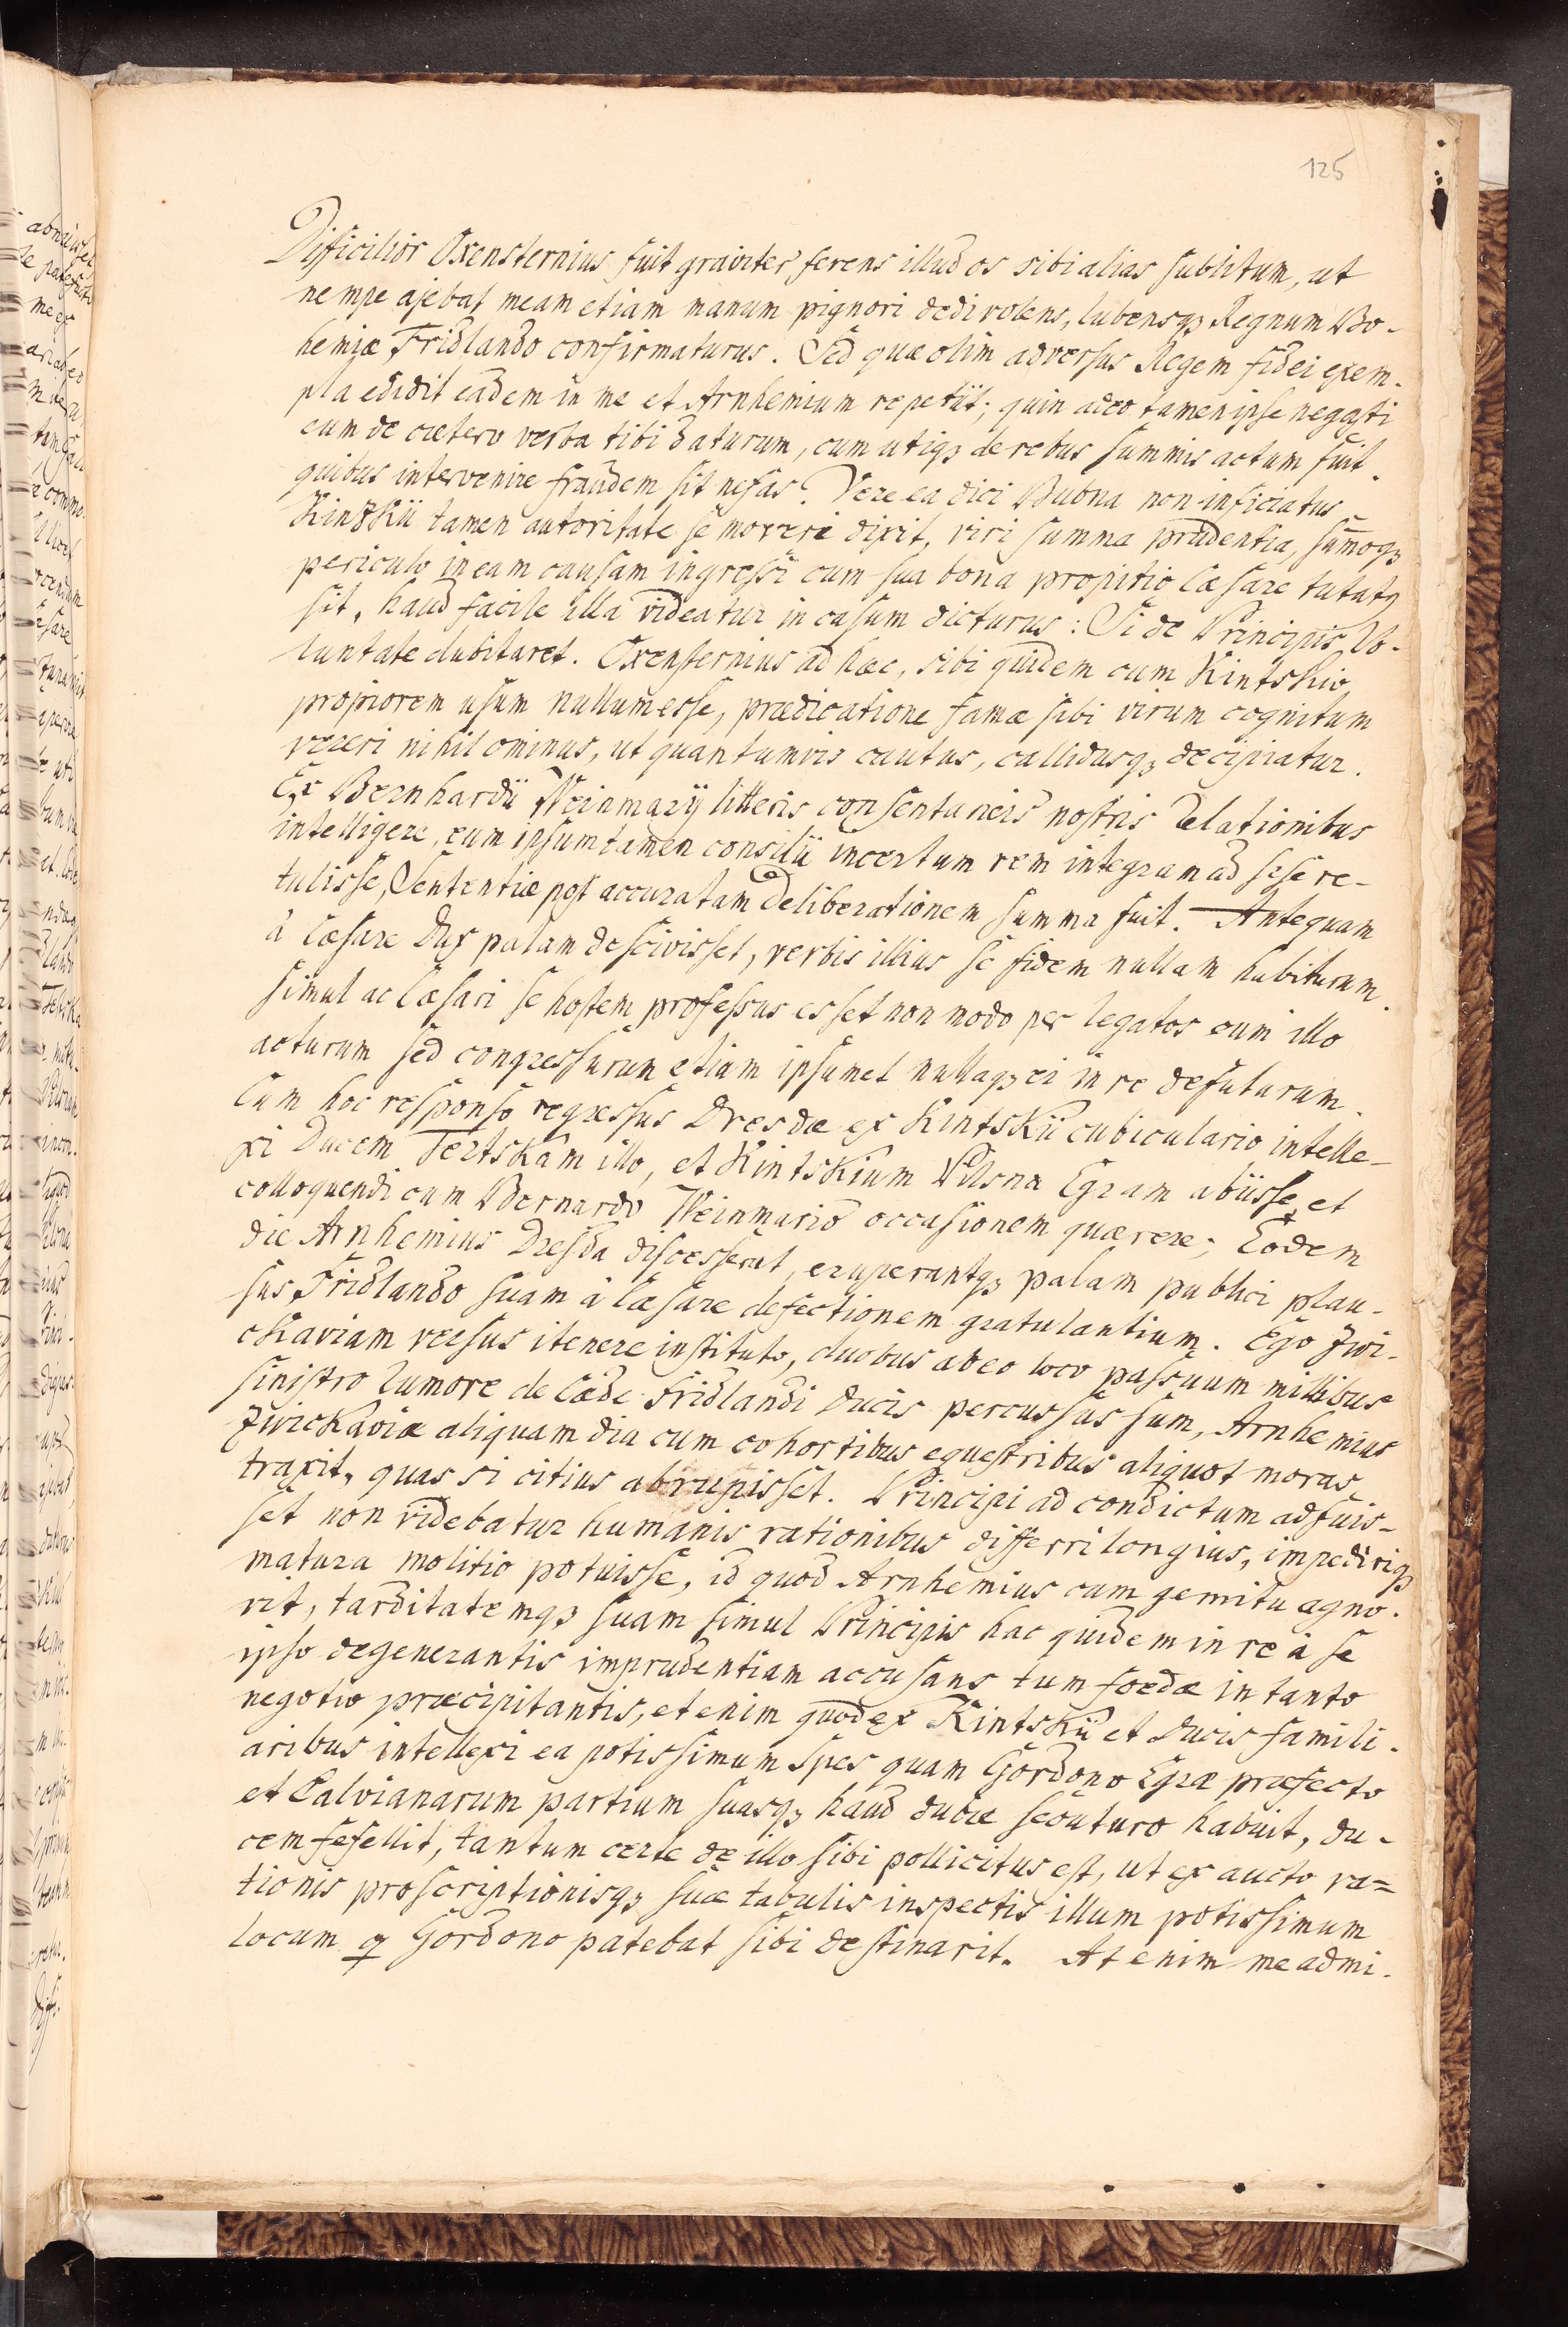 125
Difficilior Oxensternius fuit graviter ferens illud os sibi alias sublitum, ut
nempe ajebat meam etiam manum pignori dedi volens, lubensq3 Regnum Bo-
hemiæ Fridlando confirmaturus. Sed quæ olim adversus Regem fidei exem-
pla edidit eadem in me et Arnhemium repetiit; quin adeo tamen ipse negasti
eum de cætero verba tibi daturum, cum utiq3 de rebus summis actum fuit.
quibus intervenire fraudem sit nefas? Vere ea dici Bubna non inficiatus
Kinzkii tamen autoritate se moveri dixit, viri summa prudentia, sum̄oq3
periculo in eam causam ingressi cum sua bona propitio Cæsare tutatq
sit, haud facile illa videatur in casum dicturus: Si de Principis Vo-
luntate dubitaret. Oxensternius ad hæc, sibi quidem cum Kintskio
propiorem usum nullum esse, prædicatione famæ sibi virum cognitum
vereri nihilominus, ut quantumvis cautus, callidusq3 decipiatur.
Ex Bernhardii Weinmarij litteris consentaneis nostris Relationibus
intelligere, eum ipsum tamen consilii incertum rem integram ad sese re-
tulisse, Sententiæ post accuratam Deliberationem summa fuit. Antequam
à Cæsare Dux palam descivisset, verbis illius se fidem nullam habiturum.
simul ac Cæsari se hostem professus esset non modo per legatos cum illo
acturum sed congressurum etiam ipsumet nullaq3 ei in re defuturum.
Cum hoc responso regressus Dresdæ ex Kintskii cubiculario intelle-
xi Ducem Tertskam illo, et Kintskium Pilsna Egram abiisse, et
colloquendi cum Bernardo Weinmario occasionem quærere; Eodem
die Arnhemius Dresda discesserat, eruperantq3 palam publici plau-
sus Fridlando suam à Cæsare defectionem gratulantium. Ego Zwi-
ckaviam versus itenere instituto, duobus ab eo loco passuum millibus
sinistro Rumore de Cæde Fridlandi Ducis percussus sum, Arnhemius
Zwickaviæ aliquam diu cum cohortibus equestribus aliquot moras
traxit, quas si citius abrupisset. Principi ad condictum adfuis-
set non videbatur humanis rationibus differri longius, impediriq3
matura molitio potuisse, id quod Arnhemius cum gemitu agno-
vit, tarditatemq3 suam simul Principis hac quidem in re à se
ipso degenerantis imprudentiam accusans tum foedæ in tanto
negotio præcipitantis, etenim quod ex Kintskii et Ducis famili-
aribus intellexi ea potissimum Spes quam Gordono Egræ præfecto
et Calvianarum partium suasq3 haud dubie secuturo habuit, du-
cem fefellit, tantum certe de illo sibi pollicitus est, ut ex aucto ra=
tionis proscriptionisq3 suæ tabulis inspectis illum potissimum
locum q Gordono patebat sibi destinarit. At enim me admi-